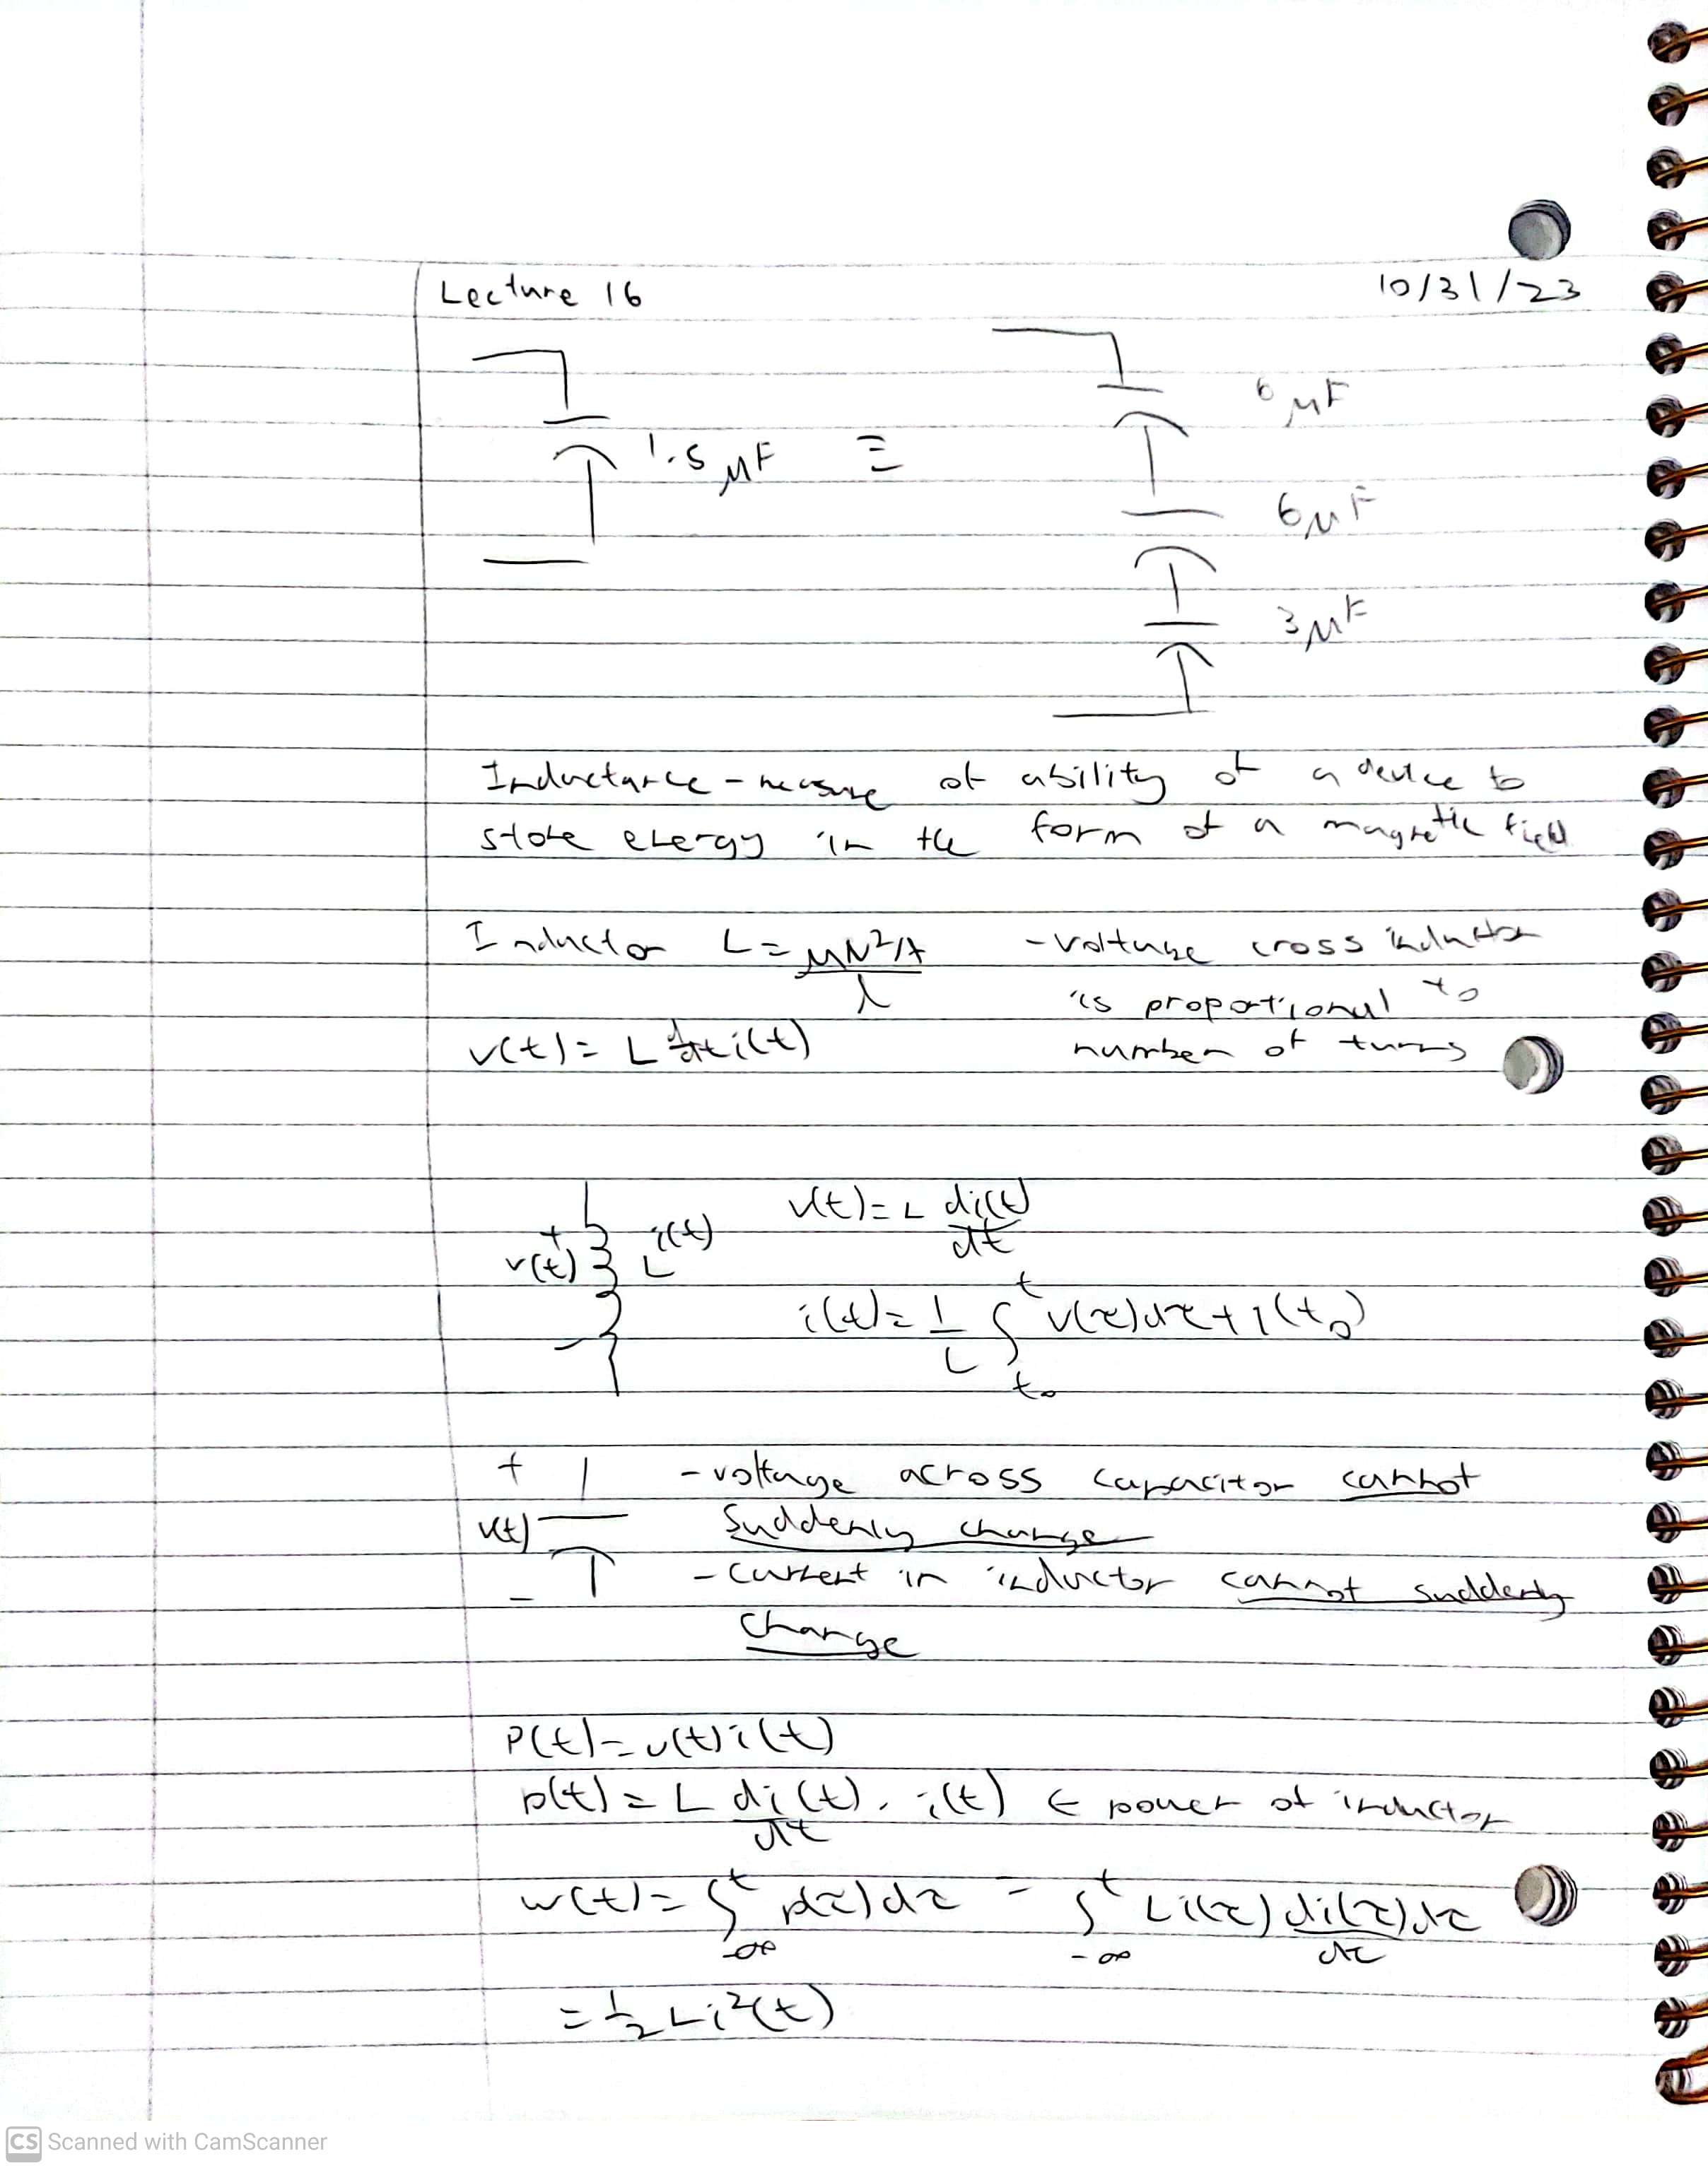 Lecture 16 10/31/23
1.5 μF ≡ 6 μF
6 μF
3 μF
Inductance - measure of ability of a device to
store energy in the form of a magnetic field
Inductor L = μN²A / l - voltage cross inductor
is proportional to
v(t) = L d/dt i(t) number of turns
v(t) = L di(t)/dt
+ i(t)
v(t) L
i(t) = 1/L ∫ t t₀ v(τ)dτ + i(t₀)
-
+ - voltage across capacitor cannot
v(t) suddenly change
- - current in inductor cannot suddenly
change
P(t) = v(t)i(t)
p(t) = L di(t)/dt · i(t) ← power of inductor
w(t) = ∫ t -∞ p(τ)dτ = ∫ t -∞ Li(τ) di(τ)/dτ dτ
= ½ Li²(t)
CS Scanned with CamScanner